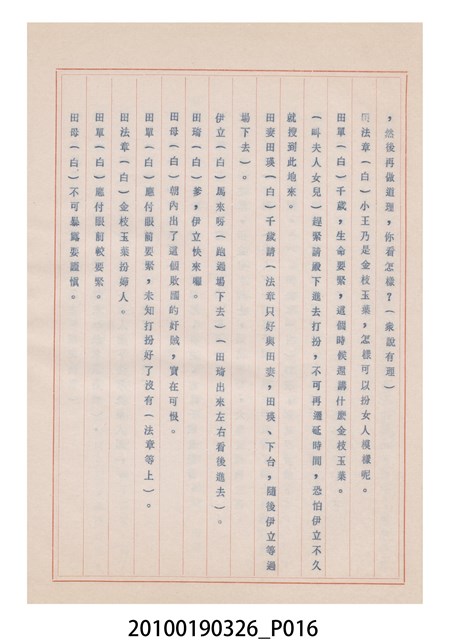 ，然後再做道理，你看怎樣？（衆說有理）
田法章（白）小王乃是金枝玉葉，怎樣可以扮女人模樣呢。
田單（白）千歲，生命要緊，這個時候還講什麽金枝玉葉。
（叫夫人女兒）趕緊請殿下進去打扮，不可再遷延時間，恐怕伊立不久
就搜到此地來。
田妻田瑛（白）千歲請（法章只好與田妻，田瑛、下台，隨後伊立等過
場下去）。
伊立（白）馬來呀（跑過場下去）（田琦出來左右看後進去）。
田琦（白）爹，伊立快來囉。
田母（白）朝內出了這個敗國的奸賊，實在可恨。
田單（白）應付眼前要緊，未知打扮好了沒有（法章等上）。
田法章（白）金枝玉葉扮婦人。
田單（白）應付眼前較要緊。
田母（白）不可暴寫要謹慎。
20100190326_P016